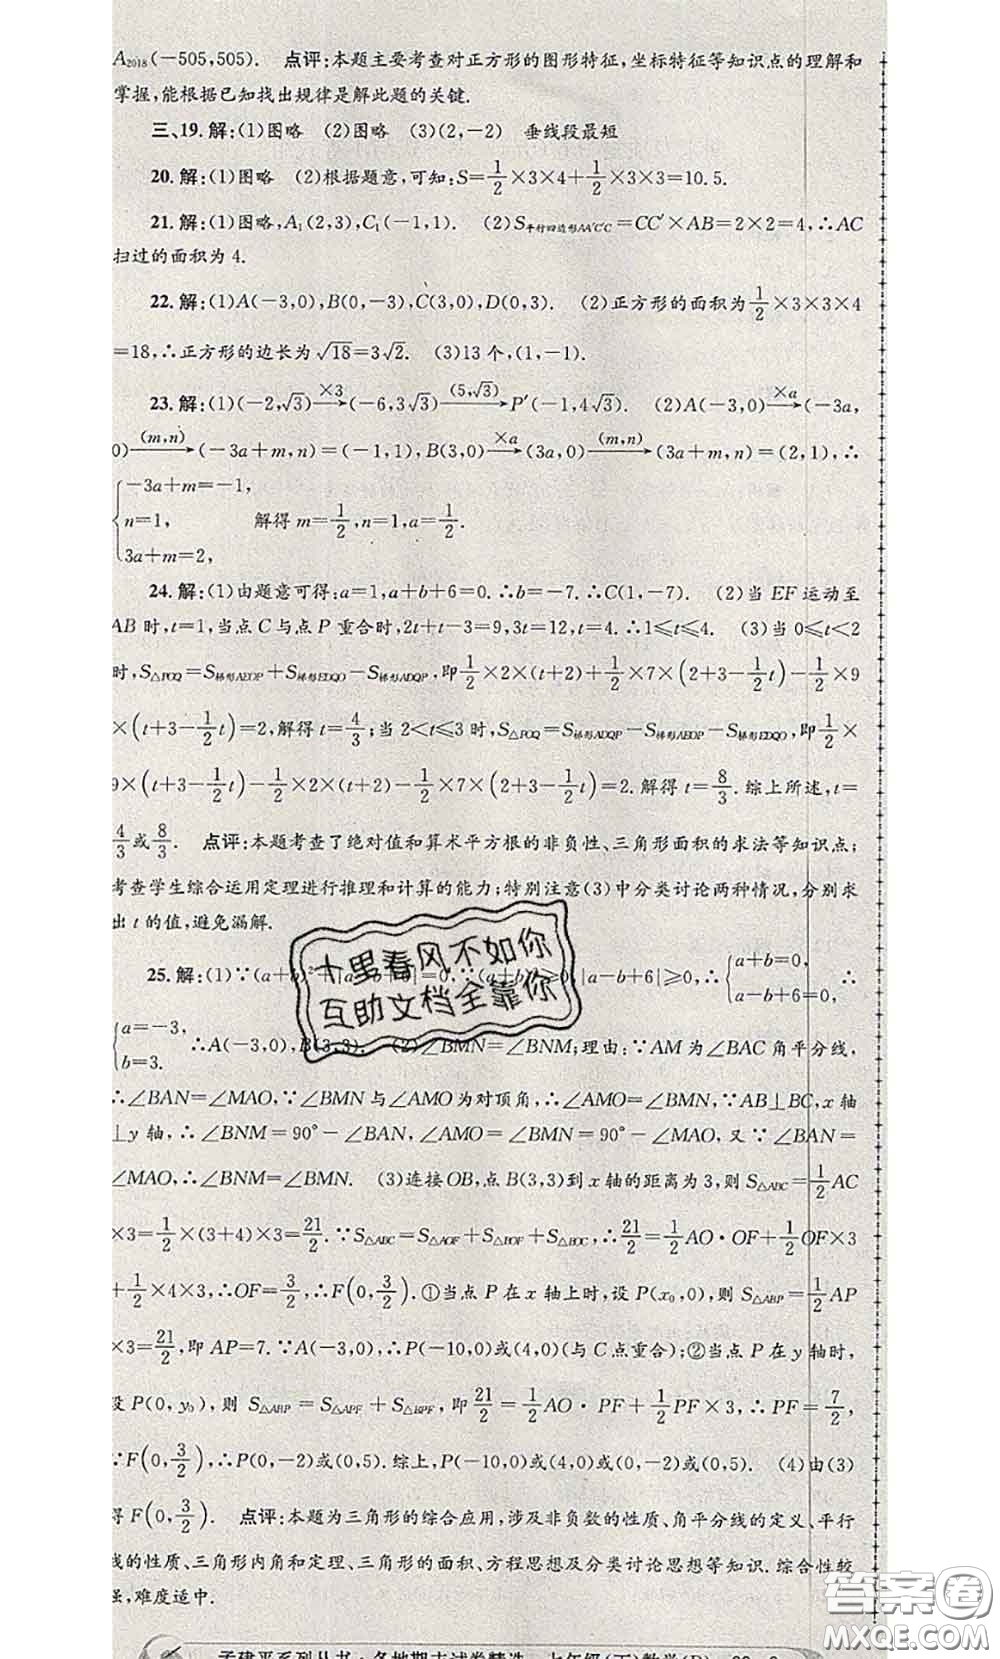 A₂₀₁₈(－505,505). 点评:本题主要考查对正方形的图形特征,坐标特征等知识点的理解和
掌握,能根据已知找出规律是解此题的关键.
三、19.解:(1)图略 (2)图略 (3)(2,－2) 垂线段最短
20.解:(1)图略 (2)根据题意,可知:S=1/2×3×4+1/2×3×3=10.5.
21.解:(1)图略,A₁(2,3),C₁(－1,1). (2)S平行四边形AA′C′C=CC′×AB=2×2=4,∴AC
扫过的面积为4.
22.解:(1)A(－3,0),B(0,－3),C(3,0),D(0,3). (2)正方形的面积为1/2×3×3×4
=18,∴正方形的边长为√18=3√2. (3)13个,(1,－1).
23.解:(1)(－2,√3)—×3→(－6,3√3)—(5,√3)→P′(－1,4√3). (2)A(－3,0)—×a→(－3a,
0)—(m,n)→(－3a+m,n)=(－1,1),B(3,0)—×a→(3a,0)—(m,n)→(3a+m,n)=(2,1),∴
{－3a+m=－1,
n=1, 解得m=1/2,n=1,a=1/2.
3a+m=2,
24.解:(1)由题意可得:a=1,a+b+6=0.∴b=－7.∴C(1,－7). (2)当EF运动至
AB时,t=1,当点C与点P重合时,2t+t－3=9,3t=12,t=4.∴1≤t≤4. (3)当0≤t<2
时,S△PCQ=S梯形AEOP+S梯形EDQO－S梯形ADQP,即1/2×2×(t+2)+1/2×7×(2+3－1/2t)－1/2×9
×(t+3－1/2t)=2,解得t=4/3;当2<t≤3时,S△POQ=S梯形ADQP－S梯形AEOP－S梯形EDQO,即1/2×
9×(t+3－1/2t)－1/2×2×(t+2)－1/2×7×(2+3－1/2t)=2.解得t=8/3.综上所述,t=
4/3或8/3. 点评:本题考查了绝对值和算术平方根的非负性、三角形面积的求法等知识点;
考查学生综合运用定理进行推理和计算的能力;特别注意(3)中分类讨论两种情况,分别求
出t的值,避免漏解.
25.解:(1)∵(a+b)²+|a－b+6|=0.∵(a+b)²≥0,|a－b+6|≥0,∴{a+b=0, a－b+6=0, ∴
{a=－3, b=3. ∴A(－3,0),B(3,3). (2)∠BMN=∠BNM;理由:∵AM为∠BAC角平分线,
∴∠BAN=∠MAO,∵∠BMN与∠AMO为对顶角,∴∠AMO=∠BMN,∵AB⊥BC,x轴
⊥y轴,∴∠BNM=90°－∠BAN,∠AMO=∠BMN=90°－∠MAO,又∵∠BAN=
∠MAO,∴∠BNM=∠BMN. (3)连接OB,点B(3,3)到x轴的距离为3,则S△ABC=1/2AC
×3=1/2×(3+4)×3=21/2.∵S△ABC=S△AOF+S△BOF+S△BOC,∴21/2=1/2AO·OF+1/2OF×3
+1/2×4×3,∴OF=3/2,∴F(0,3/2).①当点P在x轴上时,设P(x₀,0),则S△ABP=1/2AP
×3=21/2,即AP=7.∵A(－3,0),∴P(－10,0)或(4,0)(与C点重合);②当点P在y轴时,
设P(0,y₀),则S△ABP=S△APF+S△BPF,即21/2=1/2AO·PF+1/2PF×3,∴PF=7/2,
∵F(0,3/2),∴P(0,－2)或(0,5).综上,P(－10,0)或(4,0)或(0,－2)或(0,5). (4)由(3)
得F(0,3/2). 点评:本题为三角形的综合应用,涉及非负数的性质、角平分线的定义、平行
线的性质、三角形内角和定理、三角形的面积、方程思想及分类讨论思想等知识.综合性较
强,难度适中.
十里春风不如你
互助文档全靠你
答案卷